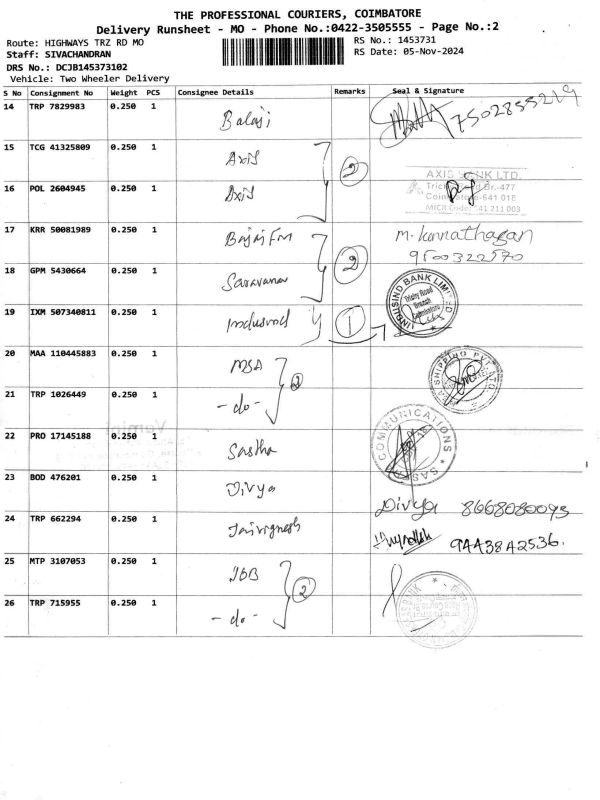 THE PROFESSIONAL COURIERS, COIMBATORE
Delivery Runsheet - MO - Phone No.:0422-3505555 - Page No.:2
Route: HIGHWAYS TRZ RD MO
RS No.: 1453731
Staff: SIVACHANDRAN
RS Date: 05-Nov-2024
DRS No.: DCJB145373102
Vehicle: Two Wheeler Delivery
S No Consignment No Weight PCS Consignee Details Remarks Seal & Signature
14 TRP 7829983 0.250 1 Balaji 7502855219
15 TCG 41325809 0.250 1 Axis 2
AXIS BANK LTD.
16 POL 2604945 0.250 1 Axis
Br.-477
641 018
MICR Code: 641 211 003
17 KRR 50081989 0.250 1 Bajaj Fin 2 M. Kannathasan
9500322570
18 GPM 5430664 0.250 1 Saravana
INDUSIND BANK LIMITED
Trichy Road
Branch
Coimbatore
19 IXM 507340811 0.250 1 Indusind 1
20 MAA 110445883 0.250 1 MSA 2
SHIPPING PVT. LTD
21 TRP 1026449 0.250 1 -do-
22 PRO 17145188 0.250 1 Sastha
COMMUNICATIONS
23 BOD 476201 0.250 1 Divya
Divya 8668080093
24 TRP 662294 0.250 1 Jaivignesh 9443842536.
25 MTP 3107053 0.250 1 IOB 2
26 TRP 715955 0.250 1 -do-